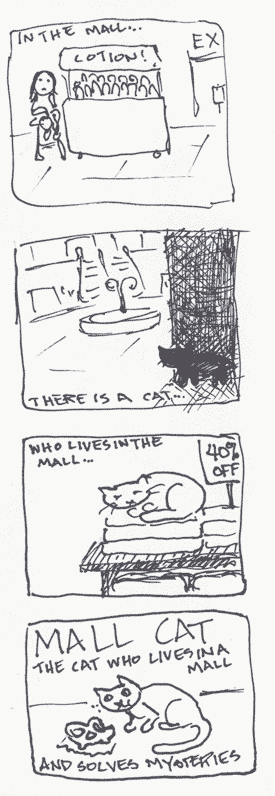 IN THE MALL...
LOTION!
EX
THERE IS A CAT...
WHO LIVES IN THE
MALL...
40%
OFF
MALL CAT
THE CAT WHO LIVES IN A
MALL
AND SOLVES MYSTERIES